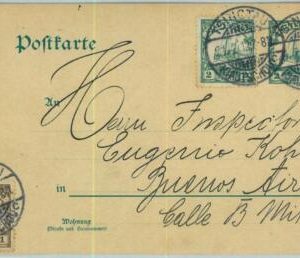 Postkarte
TSINGTAU
2
An
Herrn Inspector
Eugenio Kop
in Buenos Air
Wohnung
(Straße und Hausnummer)
Calle B Mi
1